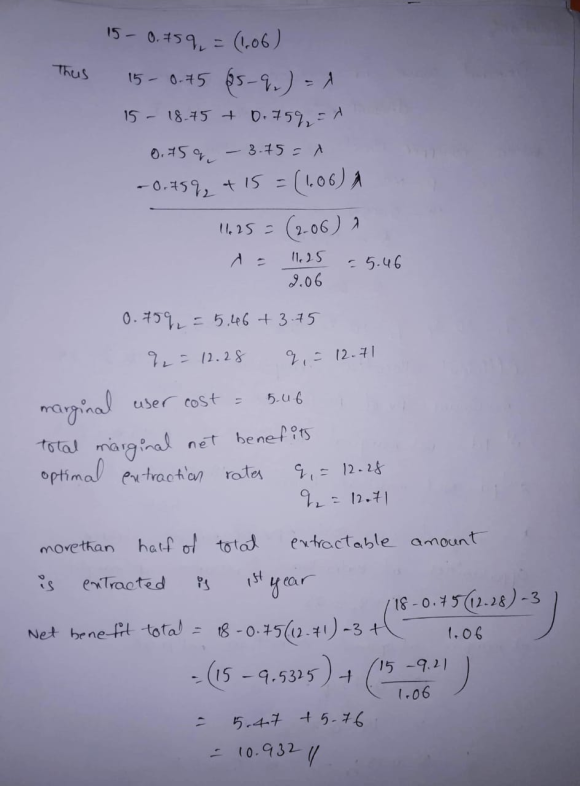 15 - 0.75q₂ = (1.06)
Thus 15 - 0.75 (25-q₂) = λ
15 - 18.75 + 0.75q₂ = λ
0.75q₂ - 3.75 = λ
-0.75q₂ + 15 = (1.06) λ
11.25 = (2.06) λ
λ = 11.25 / 2.06 = 5.46
0.75q₂ = 5.46 + 3.75
q₂ = 12.28 q₁ = 12.71
marginal user cost = 5.46
total marginal net benefits
optimal extraction rates q₁ = 12.28
q₂ = 12.71
morethan half of total extractable amount
is extracted is 1st year
Net benefit total = 18 - 0.75(12.71) - 3 + (18 - 0.75(12.28) - 3 / 1.06)
= (15 - 9.5325) + (15 - 9.21 / 1.06)
= 5.47 + 5.76
= 10.932 //